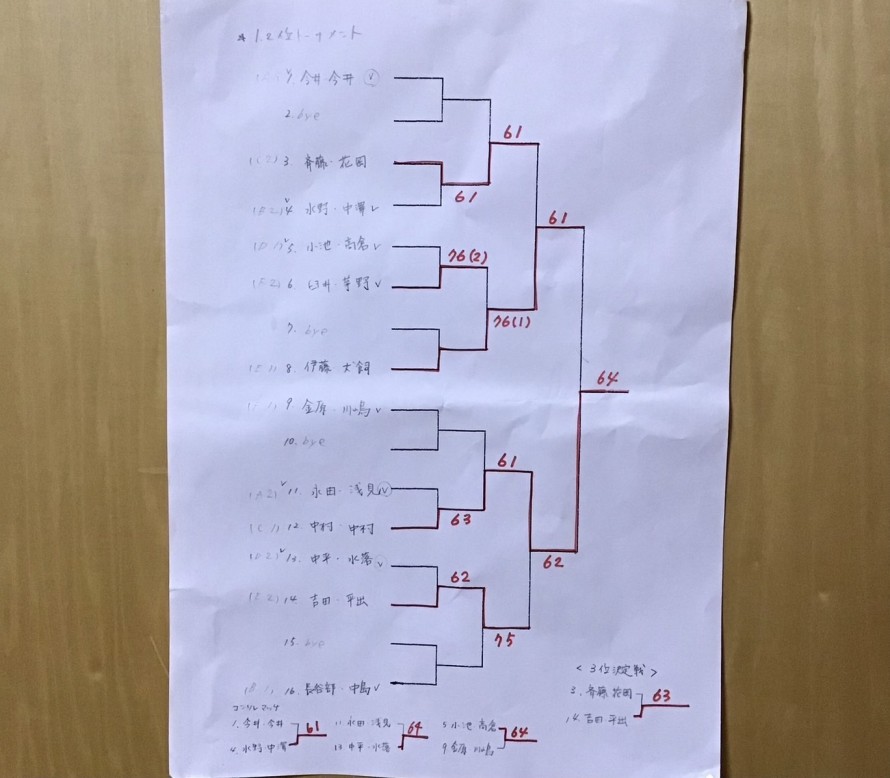 1.2位トーナメント
1. 今井・今井 v
2. bye
3. 斉藤・花岡
4 水野・中澤 v
5. 小池・高倉 v
6. 臼井・草野 v
7. bye
8. 伊藤 犬飼
9. 金原・川島 v
10. bye
11. 永田・浅見 v
12. 中村・中村
中平・水落 v
14. 吉田・平出
15. bye
16. 長谷部・中島 v
61
61
61
76(2)
76(1)
64
61
63
62
62
75
<3位決定戦>
3. 斉藤 花岡
14. 吉田 平出
63
コンソレマッチ
1. 今井 今井
4. 水野 中澤
61
11. 永田 浅見
13. 中平・水落
64
5 小池 高倉
9 金原 川島
64